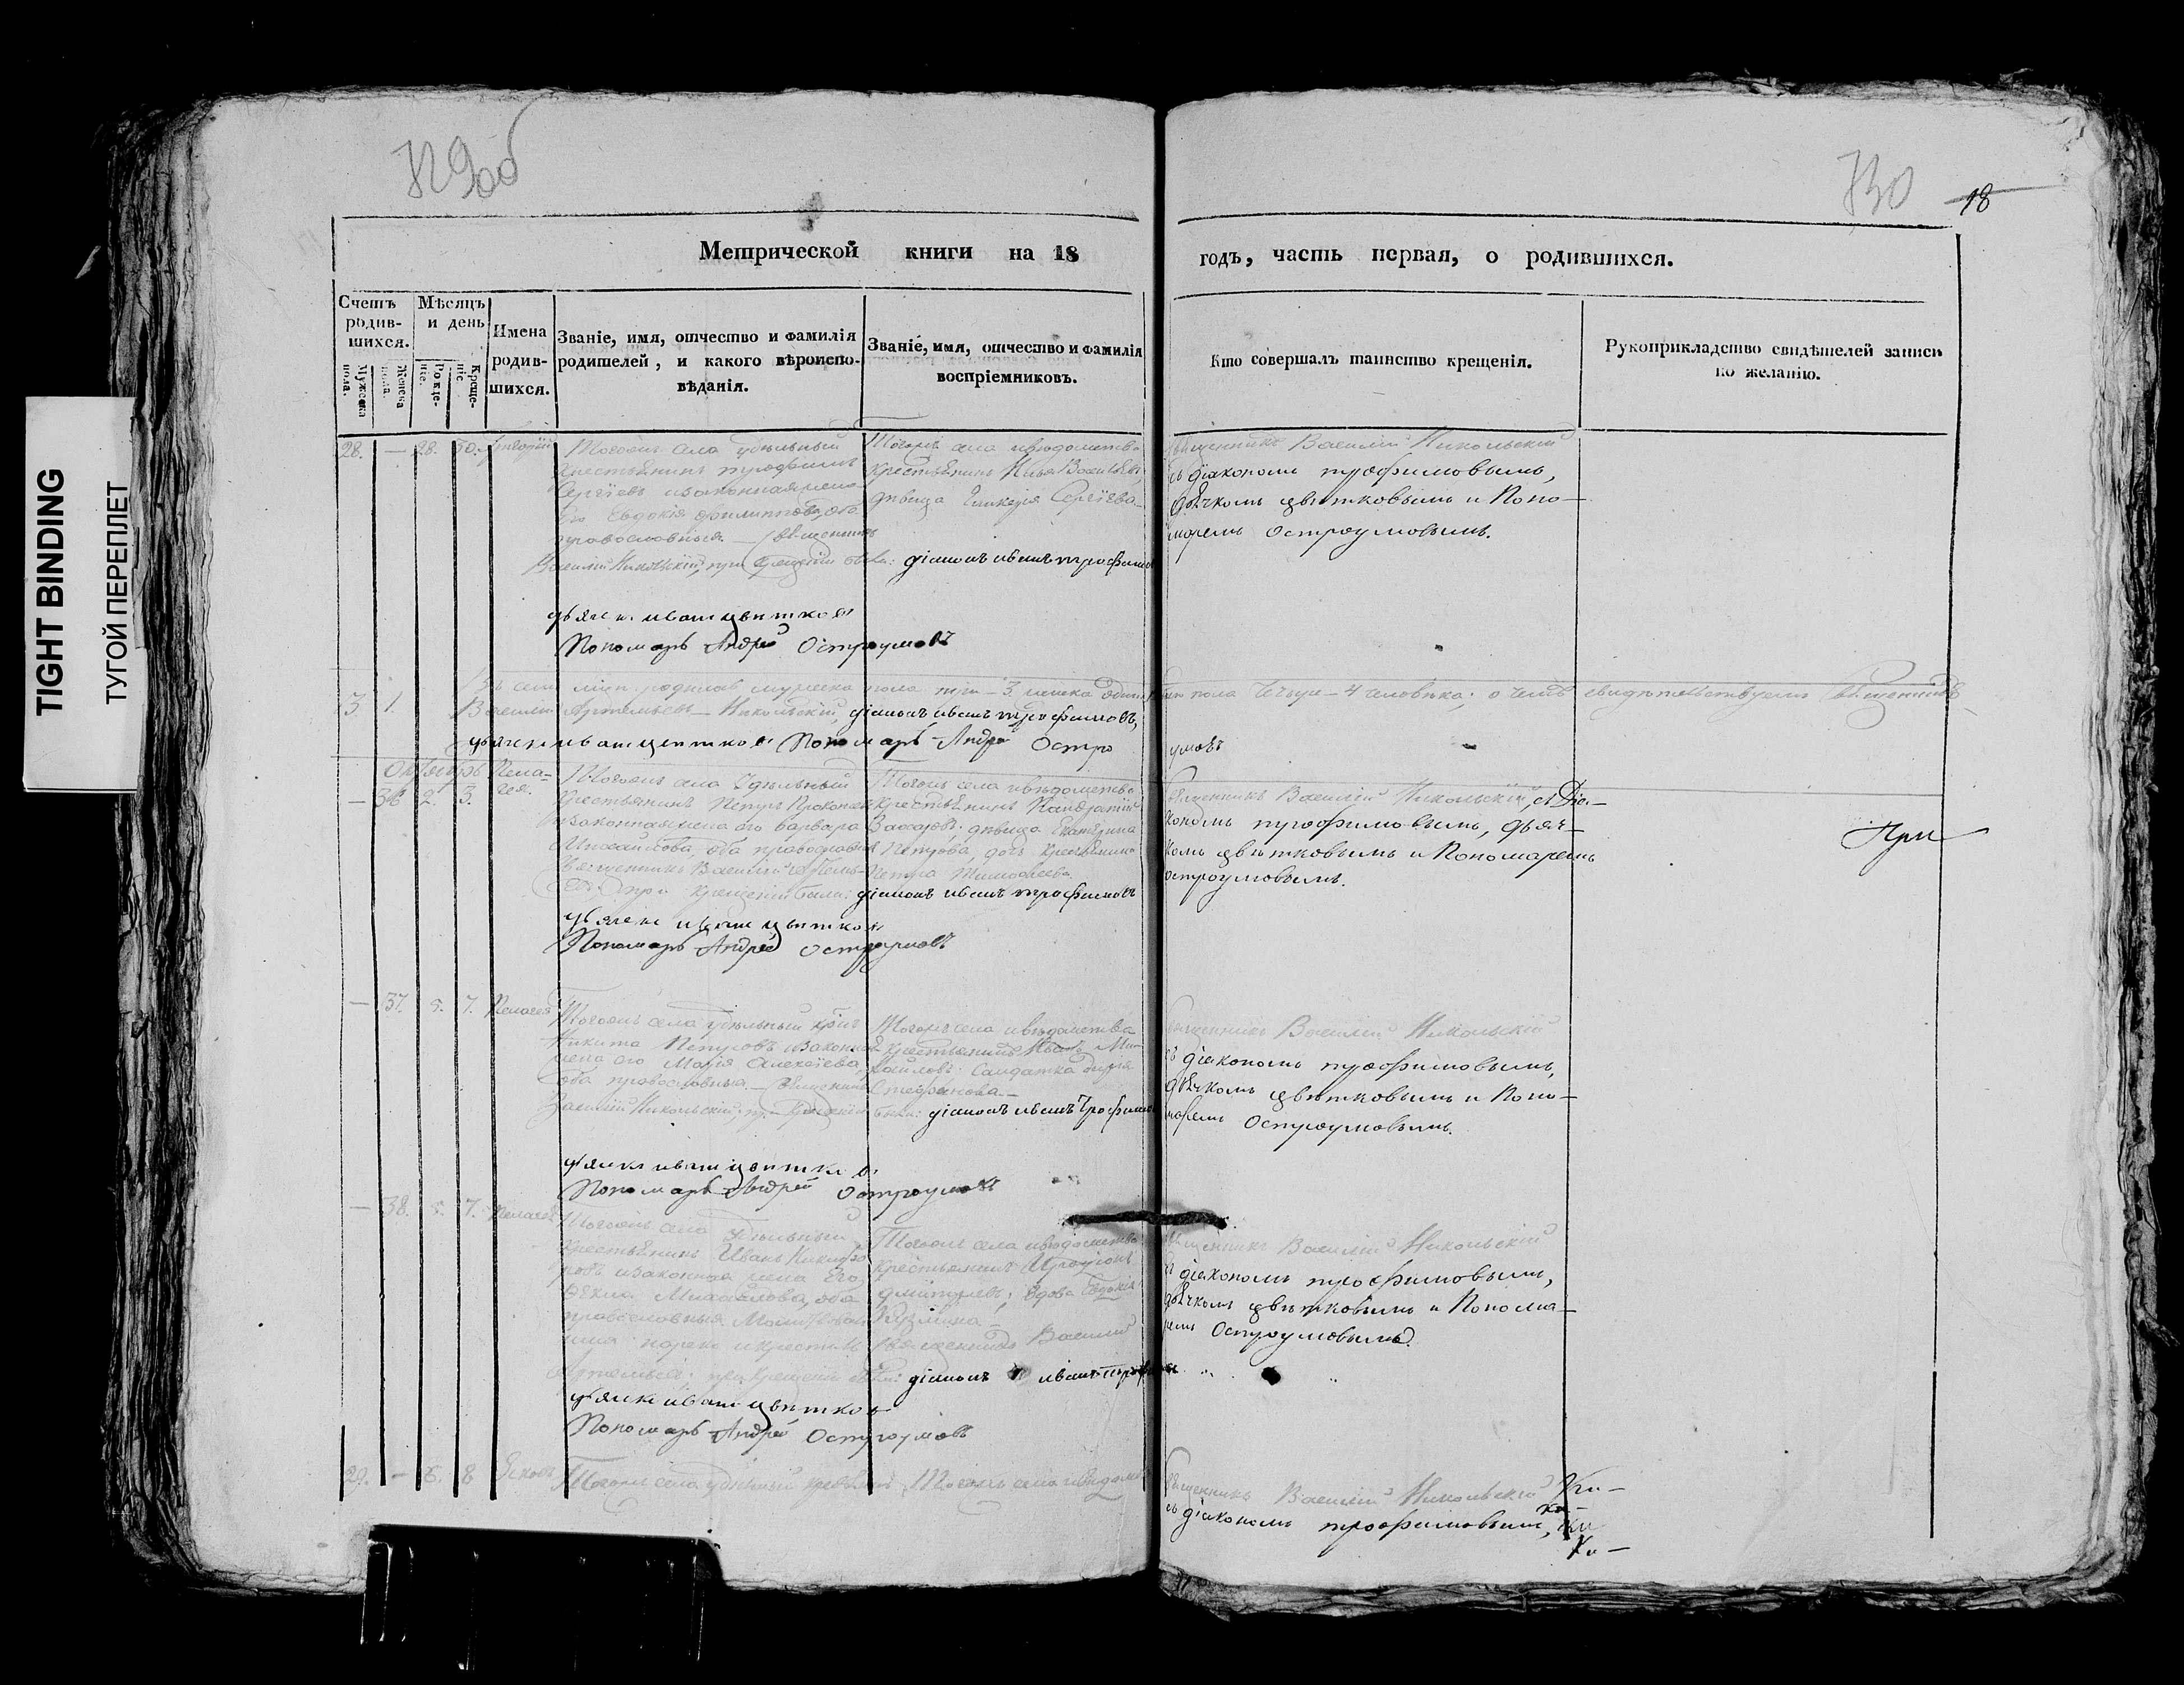 TIGHT BINDING
ТУГОЙ ПЕРЕПЛЕТ
729об
730
18
Метрической книги на 18
годъ, часть первая, о родившихся.
Счетъ родив-шихся.
Мужеска пола.
Женска пола.
Мѣсяцъ и день
Рожде-ніе.
Креще-ніе.
Имена родив-шихся.
Званіе, имя, отчество и фамилія родителей, и какого вѣроиспо-вѣданія.
Званіе, имя, отчество и фамилія воспріемниковъ.
Кто совершалъ таинство крещенія.
Рукоприкладство свидѣтелей записи по желанію.
28. — 28. 30. Григорій
Тогожъ села удѣльный
крестьянинъ Трофимъ
Сергѣевъ изаконная жена
его Евдокія Филиппова, оба
православныя. — Священникъ
Василій Никольскій, при крещеніи были: діаконъ иванъ трофимов
дьячекъ иванъ цвѣтков
Пономарь Андрей Остроумовъ
Тогожъ села ивѣдомства
крестьянинъ Илья Васильевъ,
дѣвица Гликерія Сергѣева
Священникъ Василій Никольскій
съ діакономъ трофимовымъ,
дьячкомъ цвѣтковымъ и Поно-
маремъ Остроумовымъ.
3. 1. Въ семъ мѣсяцѣ родилось мужеска пола три — 3, женска одинъ, обоего пола четыре — 4 человѣка; о чемъ свидѣтельствуемъ священникъ
Василій Артемьевъ Никольскій, діаконъ иванъ трофимовъ,
дьячекъ иванъ цветков Пономарь Андрей Остро умовъ
Октябрь
— 36 2. 3. Пела-гея.
Тогожъ села Удѣльный
крестьянинъ Петръ Прокопьев
изаконная жена его Варвара
Михайлова, оба православныя
Священникъ Василій
при крещеніи были: діаконъ иванъ трофимовъ
дьячекъ иванъ цвѣтков
Пономарь Андрей Остроумовъ
Тогожъ села ивѣдомства
крестьянинъ Кандратій
Захаровъ; дѣвица Екатерина
Петрова, дочь крестьянина
Петра Тимофеева.
Священникъ Василій Никольскій, съ Діа-
кономъ трофимовымъ, дьяч-
комъ цвѣтковымъ и Пономаремъ
остроумовымъ.
При
— 37. 5. 7. Пелагея
Тогожъ села удѣльный крѣс
Никита Петровъ изаконная
жена его Марія Алексіева,
оба православныя. — Священникъ
Василій Никольскій; при крещеніи были: діаконъ иванъ Трофимов
дьячекъ иванъ цвѣтков
Пономарь Андрей Остроумовъ
Тогожъ села ивѣдомства
крестьянинъ Иванъ Ми-
хайловъ; Салдатка Дарья
Стефанова. —
Священникъ Василій Никольскій
съ діакономъ трофимовымъ,
дьячкомъ цвѣтковымъ и Поно-
маремъ Остроумовымъ.
— 38. 5. 7. Пелагея
Тогожъ села удѣльный
крестьянинъ Иванъ Никифо
ровъ изаконная жена Его,
Фекла Михайлова, оба
православныя. Молитвовалъ
имя нарекъ икрестилъ Священникъ Василій
Артемьевъ; при крещеніи были: діаконъ иванъ трофимов
дьячекъ иванъ цвѣтков
Пономарь Андрей Остроумовъ
Тогожъ села ивѣдомства
крестьянинъ Иродіонъ
Дмитріевъ; вдова Евдокія
Кузмина —
Священникъ Василій Никольскій
съ діакономъ трофимовымъ,
дьячкомъ цвѣтковымъ и Понома-
ремъ Остроумовымъ.
29. — 6. 8 Яковъ
Тогожъ села удѣльный крестьянинъ
Тогожъ села ивѣдомст
Священникъ Василій Никольскій
съ діакономъ трофимовымъ,